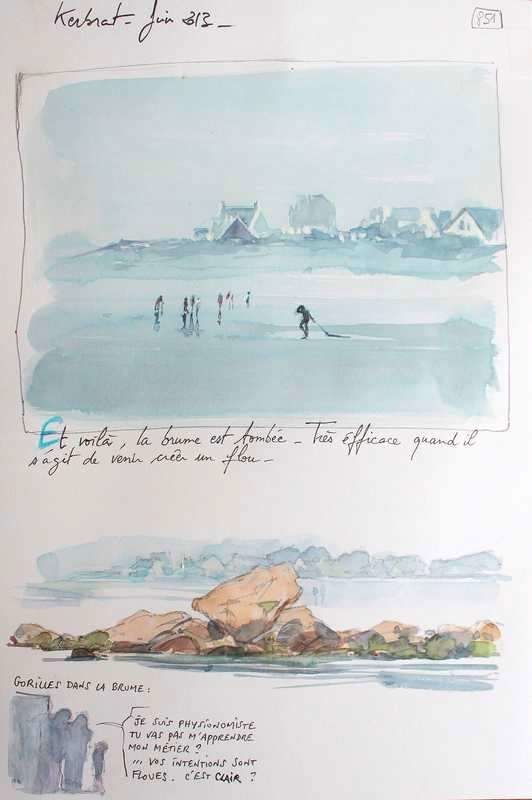 Kerbrat - Juin 2013 -
851
Et voilà, la brume est tombée - Très éfficace quand il
s'agit de venir créer un flou -
GORILLES DANS LA BRUME :
JE SUIS PHYSIONOMISTE
TU VAS PAS M'APPRENDRE
MON MÉTIER ?
... VOS INTENTIONS SONT
FLOUES. C'EST CLAIR ?